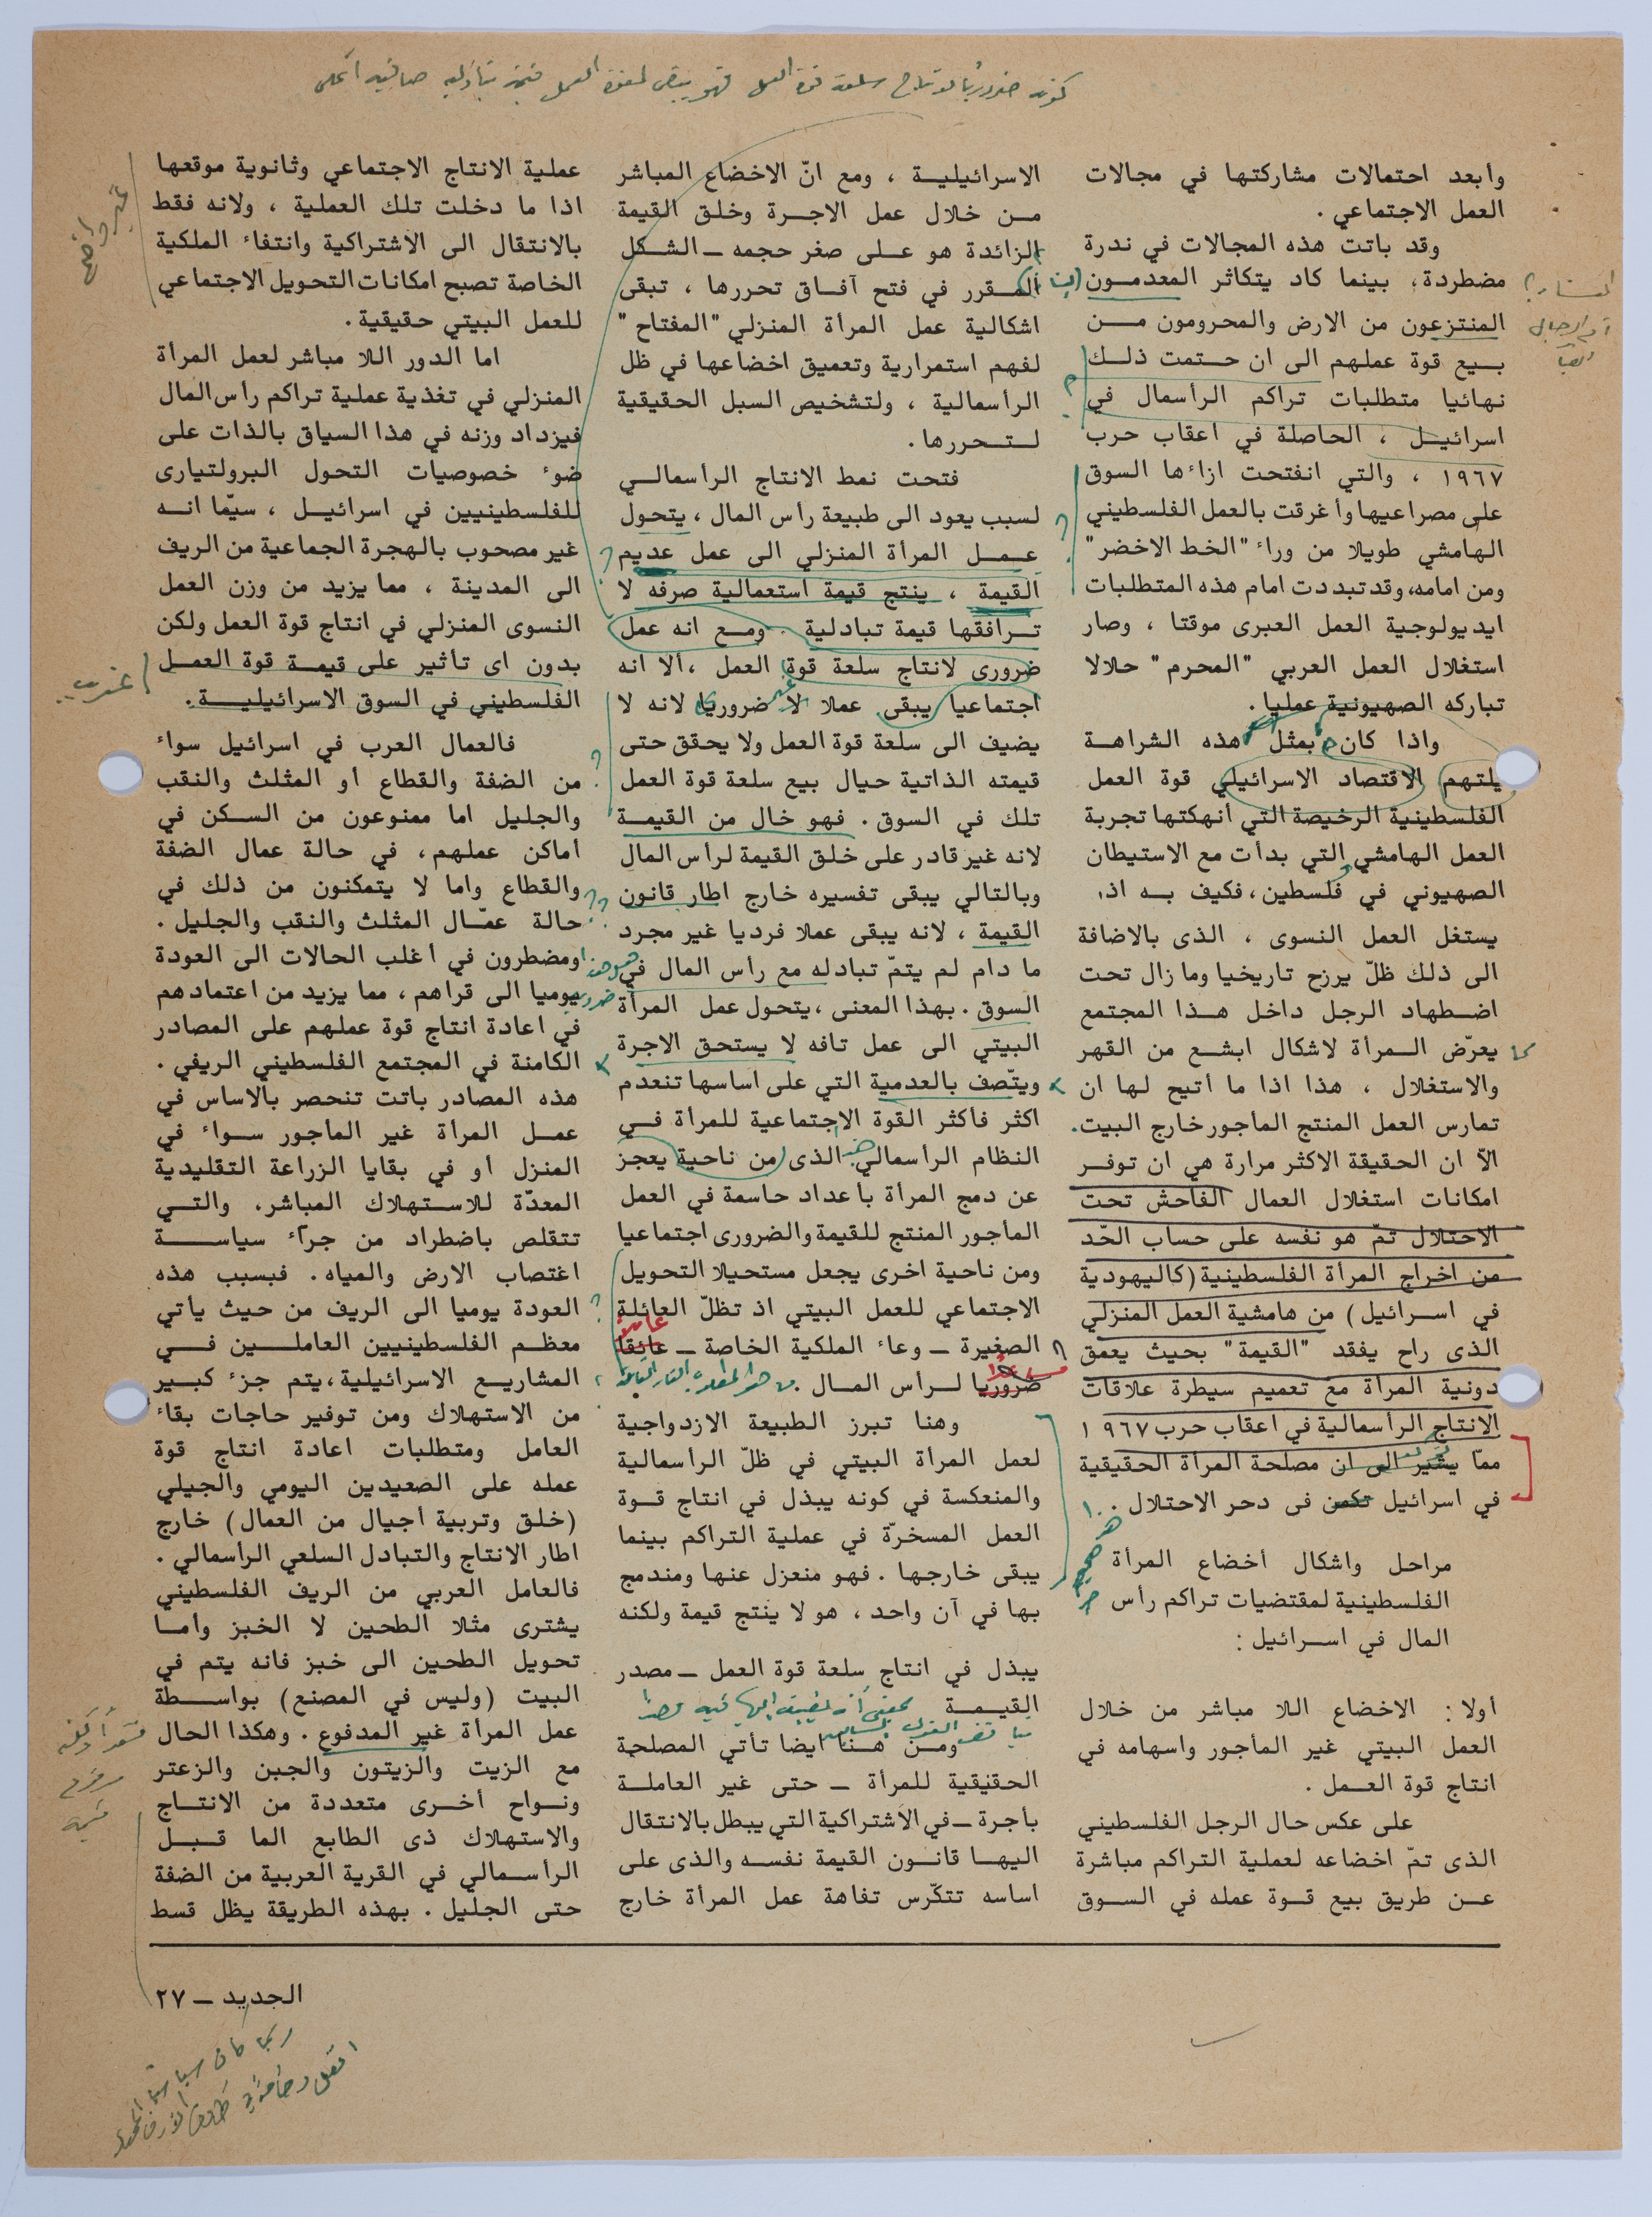 وأبعد احتمالات مشاركتها في مجالات
العمل الاجتماعي .
وقد باتت هذه المجالات في ندرة
مضطردة، بينما كاد يتكاثر المعدمون
المنتزعون من الارض والمحرومون من
بيع قوة عملهم الى ان حتمت ذلك
نهائيا متطلبات تراكم الرأسمال في
اسرائيل ، الحاصلة في اعقاب حرب
١٩٦٧ ، والتي انفتحت ازاءها السوق
على مصراعيها وأغرقت بالعمل الفلسطيني
الهامشي طويلا من وراء "الخط الاخضر"
ومن امامه، وقد تبددت امام هذه المتطلبات
ايديولوجية العمل العبرى موقتا ، وصار
استغلال العمل العربي "المحرم" حلالا
تباركه الصهيونية عمليا .
واذا كان بمثل هذه الشراهة
يلتهم الاقتصاد الاسرائيلي قوة العمل
الفلسطينية الرخيصة التي أنهكتها تجربة
العمل الهامشي التي بدأت مع الاستيطان
الصهيوني في فلسطين، فكيف به اذا
يستغل العمل النسوى ، الذى بالاضافة
الى ذلك ظلّ يرزح تاريخيا وما زال تحت
اضطهاد الرجل داخل هذا المجتمع
يعرّض المرأة لاشكال ابشع من القهر
والاستغلال ، هذا اذا ما أتيح لها ان
تمارس العمل المنتج المأجور خارج البيت.
الاّ ان الحقيقة الاكثر مرارة هي ان توفر
امكانات استغلال العمال الفاحش تحت
الاحتلال تمّ هو نفسه على حساب الحّد
من اخراج المرأة الفلسطينية (كاليهودية
في اسرائيل) من هامشية العمل المنزلي
الذى راح يفقد "القيمة" بحيث يعمق
دونية المرأة مع تعميم سيطرة علاقات
الانتاج الرأسمالية في اعقاب حرب ١٩٦٧
ممّا يشير الى ان مصلحة المرأة الحقيقية
في اسرائيل تكمن فى دحر الاحتلال .
مراحل واشكال أخضاع المرأة
الفلسطينية لمقتضيات تراكم رأس
المال في اسرائيل :
أولا : الاخضاع اللا مباشر من خلال
العمل البيتي غير المأجور واسهامه في
انتاج قوة العمل .
على عكس حال الرجل الفلسطيني
الذى تمّ اخضاعه لعملية التراكم مباشرة
عن طريق بيع قوة عمله في السوق
الاسرائيلية ، ومع انّ الاخضاع المباشر
من خلال عمل الاجرة وخلق القيمة
الزائدة هو على صغر حجمه — الشكل
المقرر في فتح آفاق تحررها ، تبقى
اشكالية عمل المرأة المنزلي "المفتاح"
لفهم استمرارية وتعميق اخضاعها في ظل
الرأسمالية ، ولتشخيص السبل الحقيقية
لتحررها .
فتحت نمط الانتاج الرأسمالي
لسبب يعود الى طبيعة رأس المال ، يتحول
عمل المرأة المنزلي الى عمل عديم
القيمة ، ينتج قيمة استعمالية صرفه لا
ترافقها قيمة تبادلية . ومع انه عمل
ضرورى لانتاج سلعة قوة العمل ، ألا انه
اجتماعيا يبقى عملا لا ضروريا لانه لا
يضيف الى سلعة قوة العمل ولا يحقق حتى
قيمته الذاتية حيال بيع سلعة قوة العمل
تلك في السوق . فهو خال من القيمة
لانه غير قادر على خلق القيمة لرأس المال
وبالتالي يبقى تفسيره خارج اطار قانون
القيمة ، لانه يبقى عملا فرديا غير مجرد
ما دام لم يتمّ تبادله مع رأس المال في
السوق . بهذا المعنى ، يتحول عمل المرأة
البيتي الى عمل تافه لا يستحق الاجرة
ويتّصف بالعدمية التي على اساسها تنعدم
اكثر فأكثر القوة الاجتماعية للمرأة في
النظام الرأسمالي الذى من ناحية يعجز
عن دمج المرأة بأعداد حاسمة في العمل
المأجور المنتج للقيمة والضرورى اجتماعيا
ومن ناحية اخرى يجعل مستحيلا التحويل
الاجتماعي للعمل البيتي اذ تظلّ العائلة
الصغيرة — وعاء الملكية الخاصة — عائقا
ضروريا لرأس المال .
وهنا تبرز الطبيعة الازدواجية
لعمل المرأة البيتي في ظلّ الرأسمالية
والمنعكسة في كونه يبذل في انتاج قوة
العمل المسخرّة في عملية التراكم بينما
يبقى خارجها . فهو منعزل عنها ومندمج
بها في آن واحد ، هو لا ينتج قيمة ولكنه
يبذل في انتاج سلعة قوة العمل — مصدر
القيمة
ومن هنا ايضا تأتي المصلحة
الحقيقية للمرأة — حتى غير العاملة
بأجرة — في الاشتراكية التي يبطل بالانتقال
اليها قانون القيمة نفسه والذى على
اساسه تتكّرس تفاهة عمل المرأة خارج
عملية الانتاج الاجتماعي وثانوية موقعها
اذا ما دخلت تلك العملية ، ولانه فقط
بالانتقال الى الاشتراكية وانتفاء الملكية
الخاصة تصبح امكانات التحويل الاجتماعي
للعمل البيتي حقيقية .
اما الدور اللا مباشر لعمل المرأة
المنزلي في تغذية عملية تراكم رأس المال
فيزداد وزنه في هذا السياق بالذات على
ضوء خصوصيات التحول البرولتيارى
للفلسطينيين في اسرائيل ، سيّما انه
غير مصحوب بالهجرة الجماعية من الريف
الى المدينة ، مما يزيد من وزن العمل
النسوى المنزلي في انتاج قوة العمل ولكن
بدون اى تأثير على قيمة قوة العمل
الفلسطيني في السوق الاسرائيلية .
فالعمال العرب في اسرائيل سواء
من الضفة والقطاع أو المثلث والنقب
والجليل اما ممنوعون من السكن في
أماكن عملهم، في حالة عمال الضفة
والقطاع واما لا يتمكنون من ذلك في
حالة عمّال المثلث والنقب والجليل .
ومضطرون في أغلب الحالات الى العودة
يوميا الى قراهم ، مما يزيد من اعتمادهم
في اعادة انتاج قوة عملهم على المصادر
الكامنة في المجتمع الفلسطيني الريفي .
هذه المصادر باتت تنحصر بالاساس في
عمل المرأة غير المأجور سواء في
المنزل أو في بقايا الزراعة التقليدية
المعدّة للاستهلاك المباشر، والتي
تتقلص باضطراد من جرّاء سياسة
اغتصاب الارض والمياه . فبسبب هذه
العودة يوميا الى الريف من حيث يأتي
معظم الفلسطينيين العاملين في
المشاريع الاسرائيلية، يتم جزء كبير
من الاستهلاك ومن توفير حاجات بقاء
العامل ومتطلبات اعادة انتاج قوة
عمله على الصعيدين اليومي والجيلي
(خلق وتربية أجيال من العمال) خارج
اطار الانتاج والتبادل السلعي الراسمالي .
فالعامل العربي من الريف الفلسطيني
يشترى مثلا الطحين لا الخبز وأما
تحويل الطحين الى خبز فانه يتم في
البيت (وليس في المصنع) بواسطة
عمل المرأة غير المدفوع . وهكذا الحال
مع الزيت والزيتون والجبن والزعتر
ونواح أخرى متعددة من الانتاج
والاستهلاك ذى الطابع الما قبل
الرأسمالي في القرية العربية من الضفة
حتى الجليل . بهذه الطريقة يظل قسط
الجديد — ٢٧